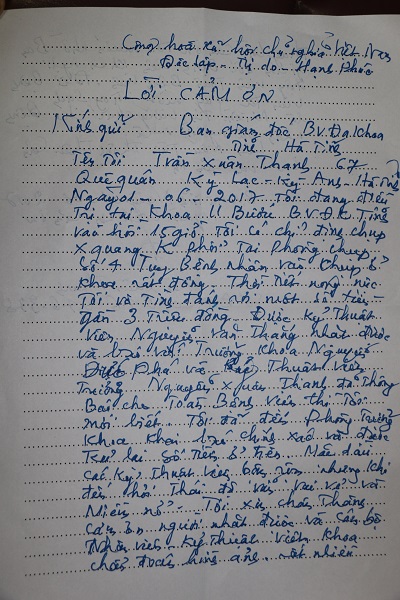 Cộng hoà xã hội chủ nghĩa Việt Nam
Độc lập - Tự do - Hạnh Phúc
LỜI CẢM ƠN
Kính gửi Ban giám đốc B.V.Đa Khoa
Tỉnh Hà Tĩnh
Tên Tôi Trần Xuân Thanh 67
Quê quán Kỳ Lạc - Kỳ Anh - Hà Tĩnh
Ngày 01 - 06 - 2017 Tôi đang điều
Trị tại Khoa U Bướu B.V.Đ.K Tỉnh
vào hồi 15 giờ Tôi có chỉ định chụp
X quang K phổi Tại Phòng chụp
Số 4. Tuy Bệnh nhân vào chụp ở
Khoa rất đông. Thời Tiết nóng nực
Tôi vô Tình đánh rơi một số tiền
gần 3. Triệu đồng. Được Kỹ Thuật
Viên Nguyễn Văn Thắng nhặt được
và báo với Trưởng Khoa Nguyễn
Phú và Thuật viên
Trưởng Nguyễn Xuân Thanh đã thông
Báo cho Toàn Bệnh viện thì Tôi
mới biết. Tôi đã đến Phòng trưởng
Khoa Khai báo chính xác và được
Trả lại số tiền ở trên. Mặc dầu
các Kỹ Thuật viên bận rộn nhưng khi
đến hỏi Thái độ vẫn vui vẻ và
Niềm nở. Tôi xin chân Thành
Cảm ơn người nhặt được và cán bộ
Nhân viên - Kỹ Thuật viên Khoa
chẩn đoán hình ảnh. nhiên